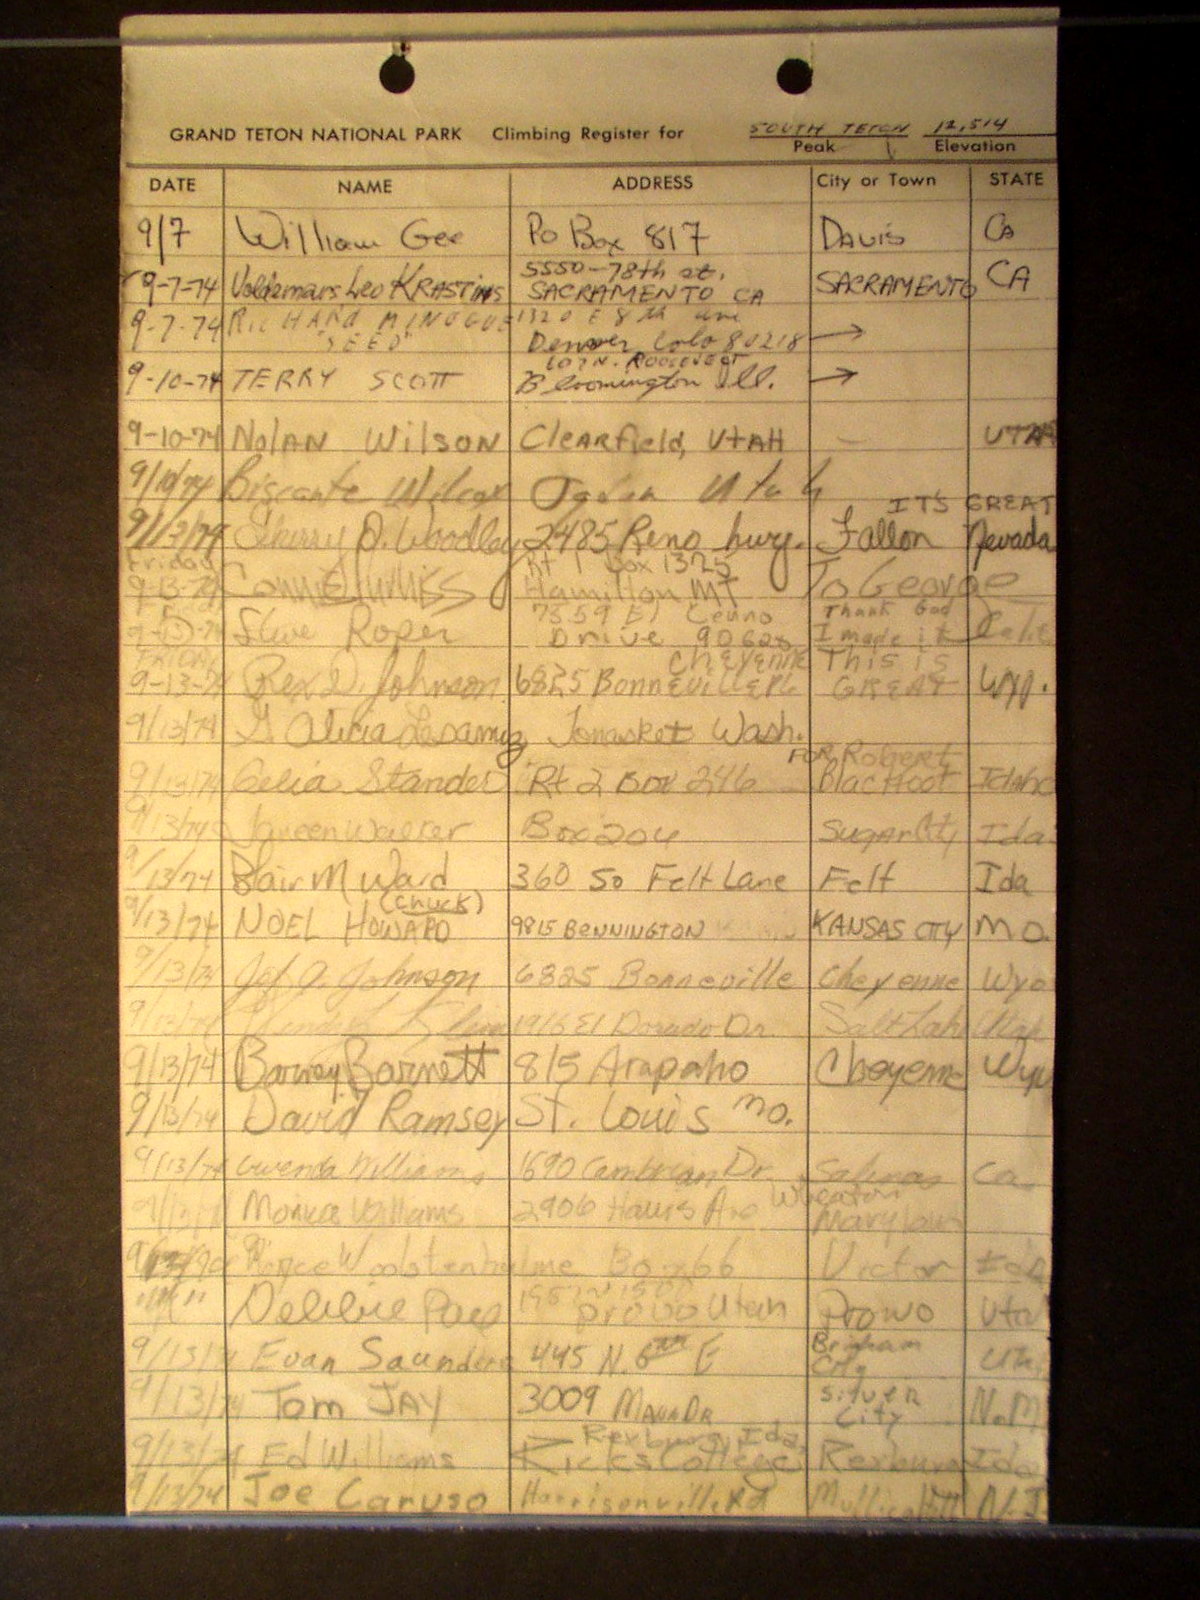 GRAND TETON NATIONAL PARK Climbing Register for SOUTH TETON 12,514
Peak Elevation
DATE NAME ADDRESS City or Town STATE
9/7 William Gee PO Box 817 DAVIS CA
9-7-74 Valdemars Leo KRASTINS 5550-78th st. SACRAMENTO CA SACRAMENTO CA
9-7-74 RICHARD MINOGUE "SEED" 1320 E 8th ave Denver Colo 80218 →
9-10-74 TERRY SCOTT N. Roosevelt Bloomington Ill. →
9-10-74 NOLAN WILSON CLEARfield, UTAH - UTAH
9/10/74 Wilcox Ogden Utah
IT'S GREAT
9/13/74 Sherry D. Woodley 2485 Reno hwy. Fallon Nevada
Friday 9-13-74 Connie Rt 1 Box 1325 Hamilton MT To George
9-13-74 Steve Roper 7559 El Drive 90620 Thank God I made it
FRIDAY 9-13-74 Rex D. Johnson 6825 BonnEvillE Pl. ChEyEnnE This is GREAT Wyo.
9/13/74 Alicia Tonasket Wash.
FOR Robert
9/13/74 Celia Stander Rt 2 Box 246 Blackfoot Idaho
9/13/74 Janeen Walker Box 204 Sugar City Ida
9/13/74 Blair M Ward 360 So Felt Lane Felt Ida
9/13/74 NOEL (Chuck) HOWARD 9815 BENNINGTON KANSAS CITY MO.
9/13/74 Johnson 6825 Bonneville Cheyenne Wyo
9/13/74 1916 El Dorado Dr. Salt Lak Utah
9/13/74 Barney Barnett 815 Arapaho Cheyenne Wyo
9/13/74 David Ramsey St. Louis Mo.
9/13/74 Gwenda Williams 1690 Cambrian Dr. Salinas Ca
9/13/74 Monica Williams 2906 Ave Wheaton Maryland
Royce Wolstenholme Box 66 Victor Ida
" " " Debbie Pace Provo Utah Provo Utah
9/13/74 Evan Saunders 445 N. 6th E Brigham City Ut.
9/13/74 Tom JAY 3009 Dr Silver City N.M
9/13/74 Ed Williams Ricks College Rexburg Ida. Rexburg Ida
9/13/74 Joe Caruso Harrisonville Rd Mullica Hill N.J